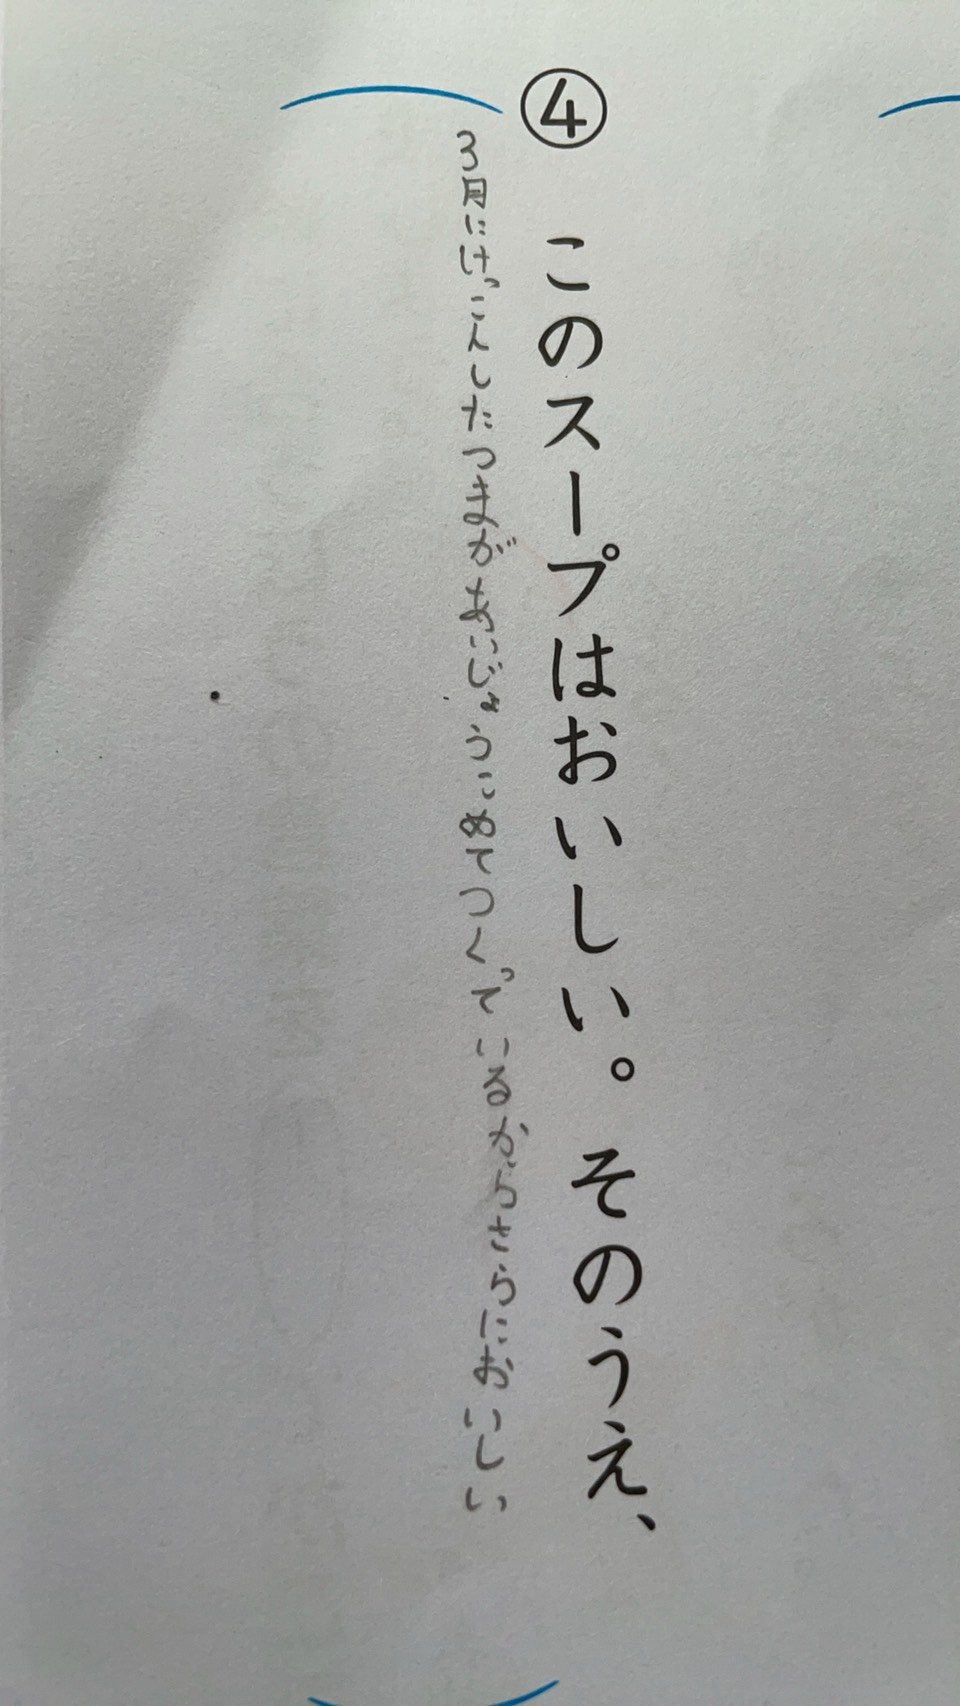 ④ このスープはおいしい。そのうえ、
3月にけっこんしたつまがあいじょうこめてつくっているからさらにおいしい